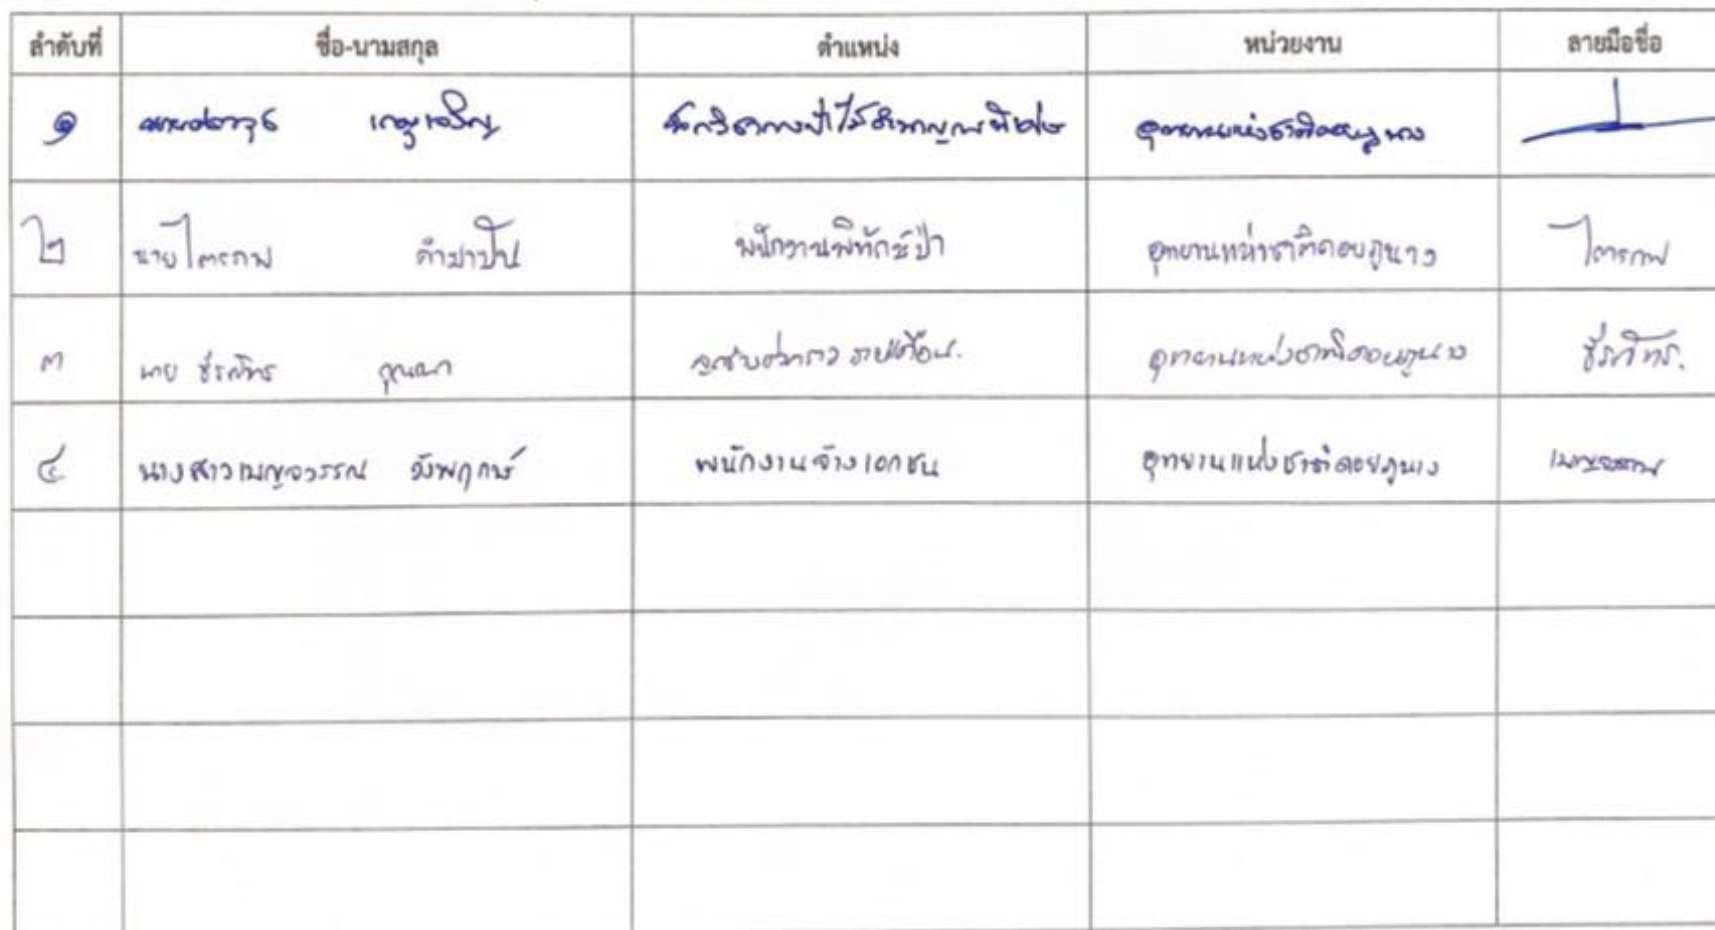 ลำดับที่ ชื่อ-นามสกุล ตำแหน่ง หน่วยงาน ลายมือชื่อ
๑ นักวิชาการป่าไม้ชำนาญการพิเศษ อุทยานแห่งชาติดอยภูนาง
๒ นายไตรภพ คำปาปัน พนักงานพิทักษ์ป่า อุทยานแห่งชาติดอยภูนาง ไตรภพ
๓ นาย ลูกจ้างชั่วคราว รายเดือน. อุทยานแห่งชาติดอยภูนาง
๔ นางสาวเบญจวรรณ วังพฤกษ์ พนักงานจ้างเอกชน อุทยานแห่งชาติดอยภูนาง เบญจวรรณ